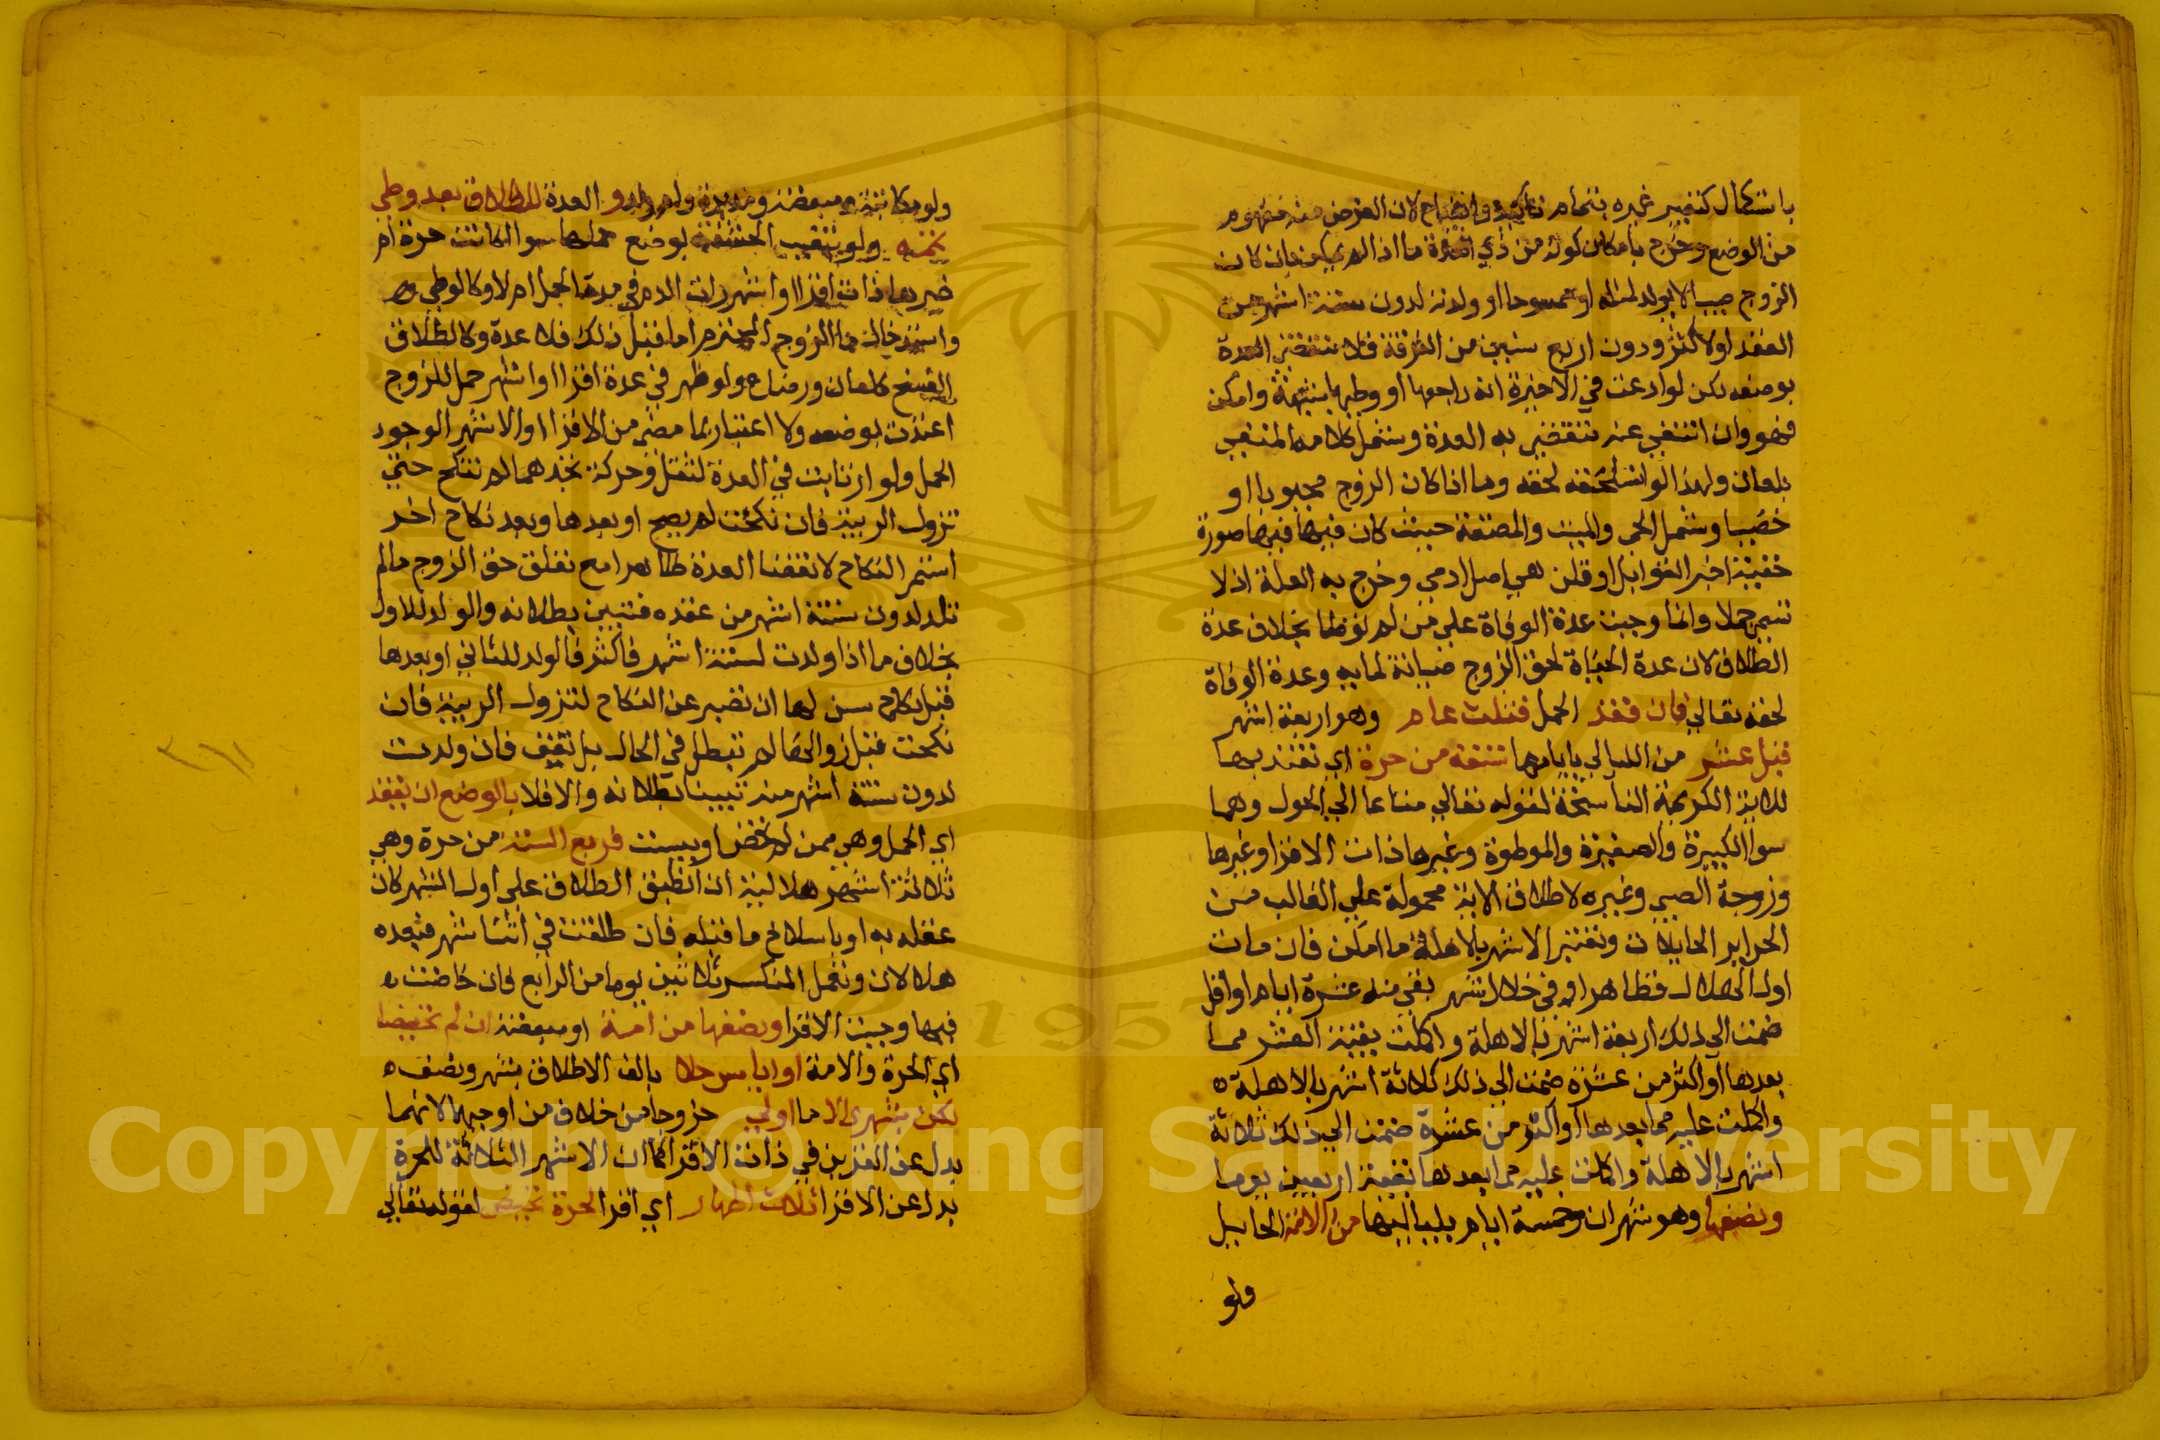 باستكمال كتعبير غيره بتمام تأكيد وايضاح لان الغرض منه مفهوم
من الوضع وخرج بامكان كونه من ذي العدة ما اذا لم يمكن بان كان
الزوج صبيا لا يولد لمثله او ممسوحا او ولدته لدون ستة اشهر من
العقد او لاكثر ودون اربع سنين من الفرقة فلا تنقضي العدة
بوضعه لكن لو ادعت في الاخيرة انه راجعها او وطيها بشبهة وامكن
فهو وان انتفي عنه تنقضي به العدة وشمل كلامه المنفي
بلعان ولهذا لو استلحقه لحقه وما اذا كان الزوج مجبوبا او
خصيا وشمل الحي والميت والمضغة حيث كان فيها فيها صورة
خفية اخبر القوابل او قلن هي اصل ادمي وخرج به العلقة اذ لا
تسمي حملا وانما وجبت عدة الوفاة علي من لم توطا بخلاف عدة
الطلاق لان عدة الحياة لحق الزوج صيانة لمايه وعدة الوفاة
لحقه تعالي فان فقد الحمل فثلث عام وهو اربعة اشهر
قبل عشر من الليالي بايامها تتمة من حرة اي تعتد بها
للاية الكريمة الناسخة لقوله تعالي متاعا الي الحول وهما
سوا الكبيرة والصغيرة والموطوة وغيرها ذات الاقرا وغيرها
وزوجة الصبي وغيره لاطلاق الاية محمولة علي الغالب من
الحراير الحايلات وتعتبر الاشهر بالاهلة ما امكن فان مات
اول الهلال فظاهر او في خلال شهر بقي منه عشرة ايام او اقل
ضمت الي ذلك اربعة اشهر بالاهلة واكملت بقية العشر مما
بعدها او اكثر من عشرة ضمت الي ذلك ثلاثة اشهر بالاهلة
واكملت عليه مما بعدها او اكثر من عشرة ضمت الي ذلك ثلاثة
اشهر بالاهلة واكملت عليه مما بعدها بقية اربعين يوما
ونصفها وهو شهران وخمسة ايام بلياليها من الامة الحايل
ولو
ولو مكاتبة ومبعضة ومدبرة وام ولد و العدة للطلاق بعد وطي
نحتمه ولو بتغييب الحشفة بوضع حملها سوا اكانت حرة ام
غيرها ذات اقرا او اشهر رات الدم في مدة الحمل ام لا وكالوطي
واستدخال ما الزوج المحترم اما قبل ذلك فلا عدة وكالطلاق
الفسخ كلعان ورضاع ولو ظهر في عدة اقرا او اشهر حمل للزوج
اعتدت بوضعه ولا اعتبار بما مضي من الاقرا او الاشهر لوجود
الحمل ولو ارتابت في العدة لثقل وحركة تجدهما لم تنكح حتي
تزول الريبة فان نكحت لم يصح او بعدها وبعد نكاح اخر
استمر النكاح لانقضا العدة ظاهرا مع تعلق حق الزوج مالم
تلد لدون ستة اشهر من عقده فتبين بطلانه والولد للاول
بخلاف ما اذا ولدت لستة اشهر فاكثر فالولد للثاني او بعدها
قبل نكاح سن لها ان تصبر عن النكاح لتزول الريبة فان
نكحت قبل زوالها لم تبطل في الحال بل تقف فان ولدت
لدون ستة اشهر منه تبينا بطلانه والا فلا بالوضع ان يفقد
اي الحمل وهي ممن لم تحض او ييست فربع السنة من حرة وهي
ثلاثة اشهر هلالية ان انطبق الطلاق علي اول الشهر كان
علقه به او بانسلاخ ما قبله فان طلقت في اثنا شهر فبعده
هلالان وتكمل المنكسر ثلاثين يوما من الرابع فان حاضت
فيها وجبت الاقرا ونصفها من امة او مبعضة ان لم تحيضا
اي الحرة والامة او اياس حلا بالف الاطلاق بشهر ونصف
لكن بشهرين الاما اولي خروجا من خلاف من اوجبهما لانهما
بدل عن القرين في ذات الاقرا كما ان الاشهر الثلاثة للحرة
بدل عن الاقرا ثلاث اطهار اي اقرا لحرة تحيض لقوله تعالي
Copyright © King Saud University
1957